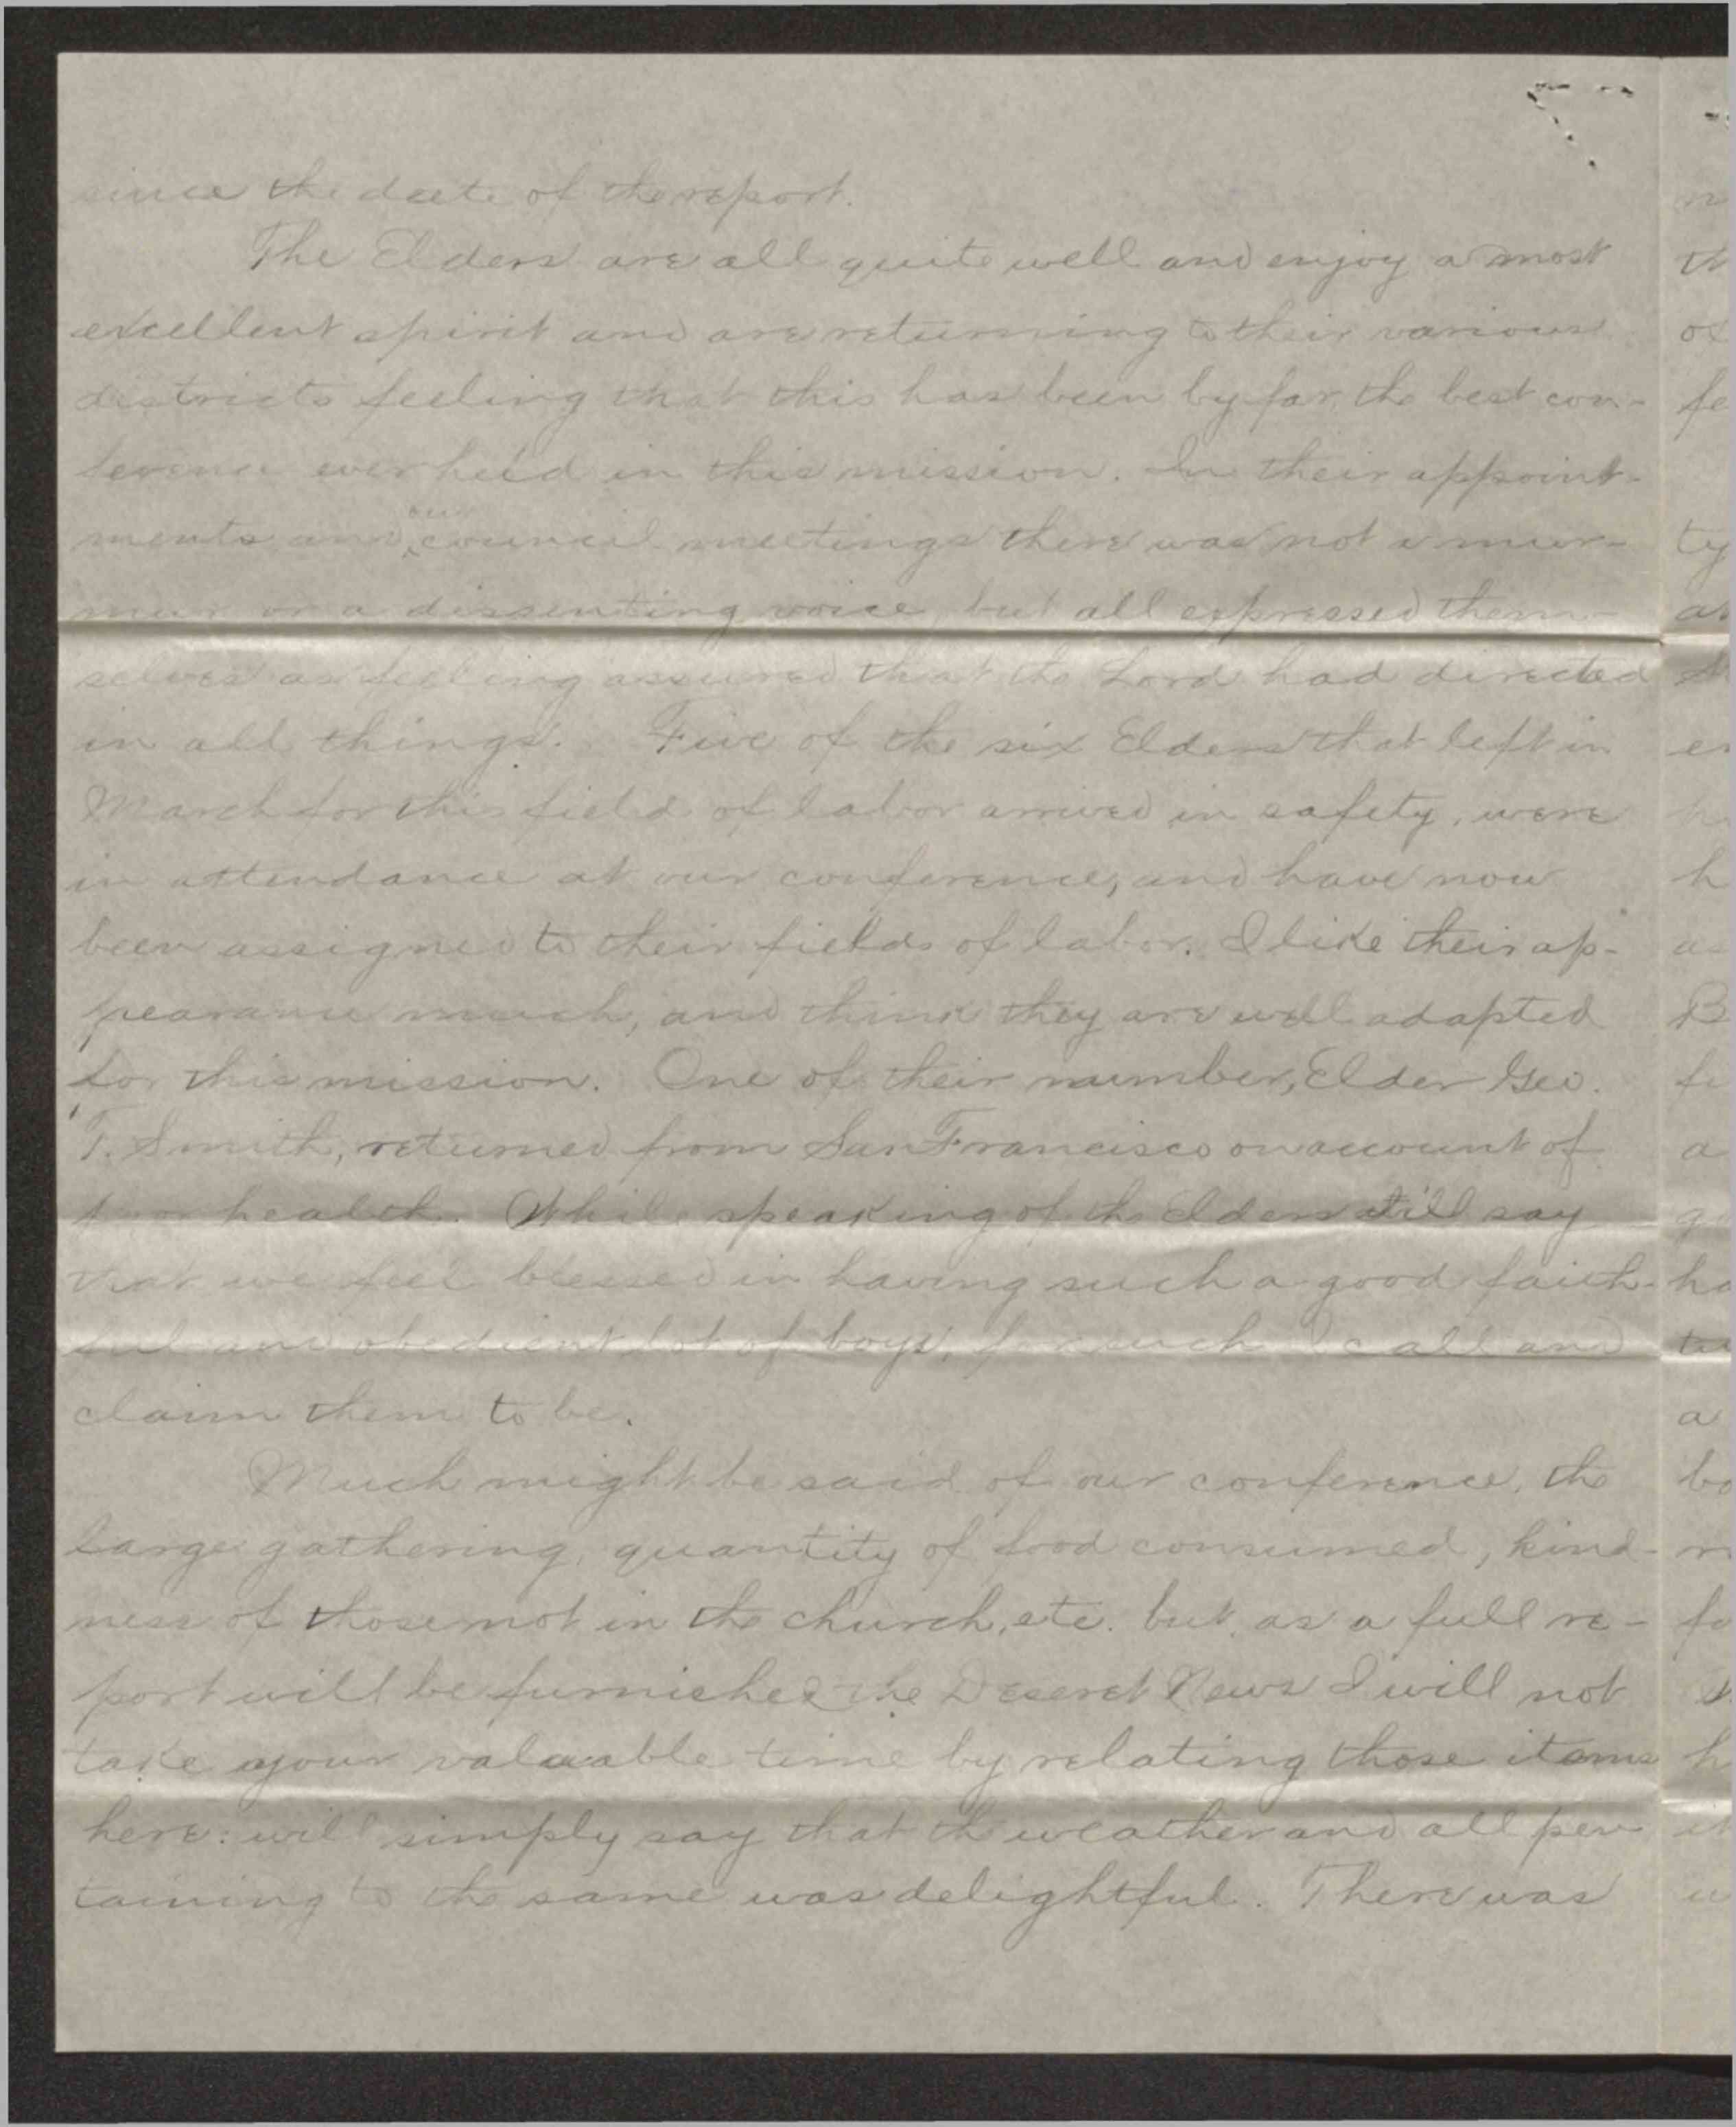 since the date of the report.
The Elders are all quite well and enjoy a most
excellent spirit and are returning to their various
districts feeling that this has been by far the best con-
ference ever held in this mission. In their appoint-
ments and our council meetings there was not a mur-
mur or a dissenting voice, but all expressed them-
selves as feeling assured that the Lord had directed
in all things. Five of the six Elders that left in
March for this field of labor arrived in safety, were
in attendance at our conference, and have now
been assigned to their fields of labor. I like their ap-
pearance much, and think they are well adapted
for this mission. One of their number, Elder Geo.
T. Smith, returned from San Francisco on account of
poor health. While speaking of the Elders will say
that we feel blessed in having such a good faith-
ful and obedient lot of boys, for such I call and
claim them to be.
Much might be said of our conference, the
large gathering, quantity of food consumed, kind-
ness of those not in the church, etc. but as a full re-
port will be furnished the Deseret News I will not
take your valuable time by relating those items
here: will simply say that the weather and all per
taining to the same was delightful. There was